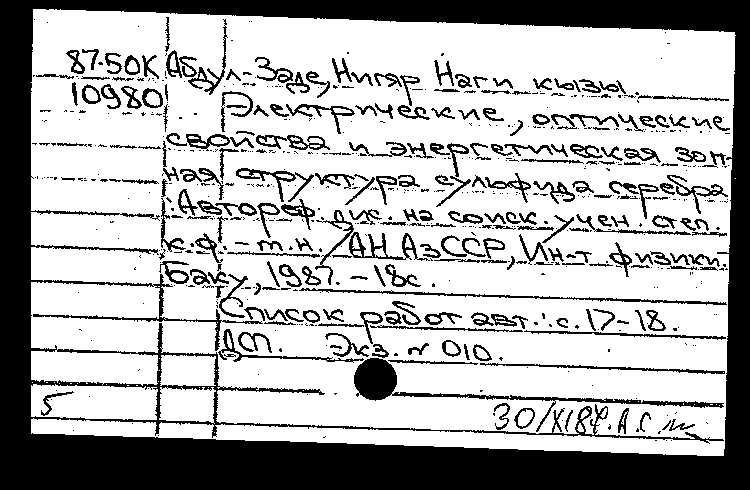 87-50К Абдул-Заде, Нигяр Наги кызы.
10980 Электрические, оптические
свойства и энергетическая зон-
ная структура сульфида серебра
: Автореф. дис. на соиск. учен. степ.
к.ф.-м.н. / АН АзССР, Ин-т физики.
Баку, 1987. - 18с.
Список работ авт.: с. 17-18.
ДСП. Экз. № 010.
5